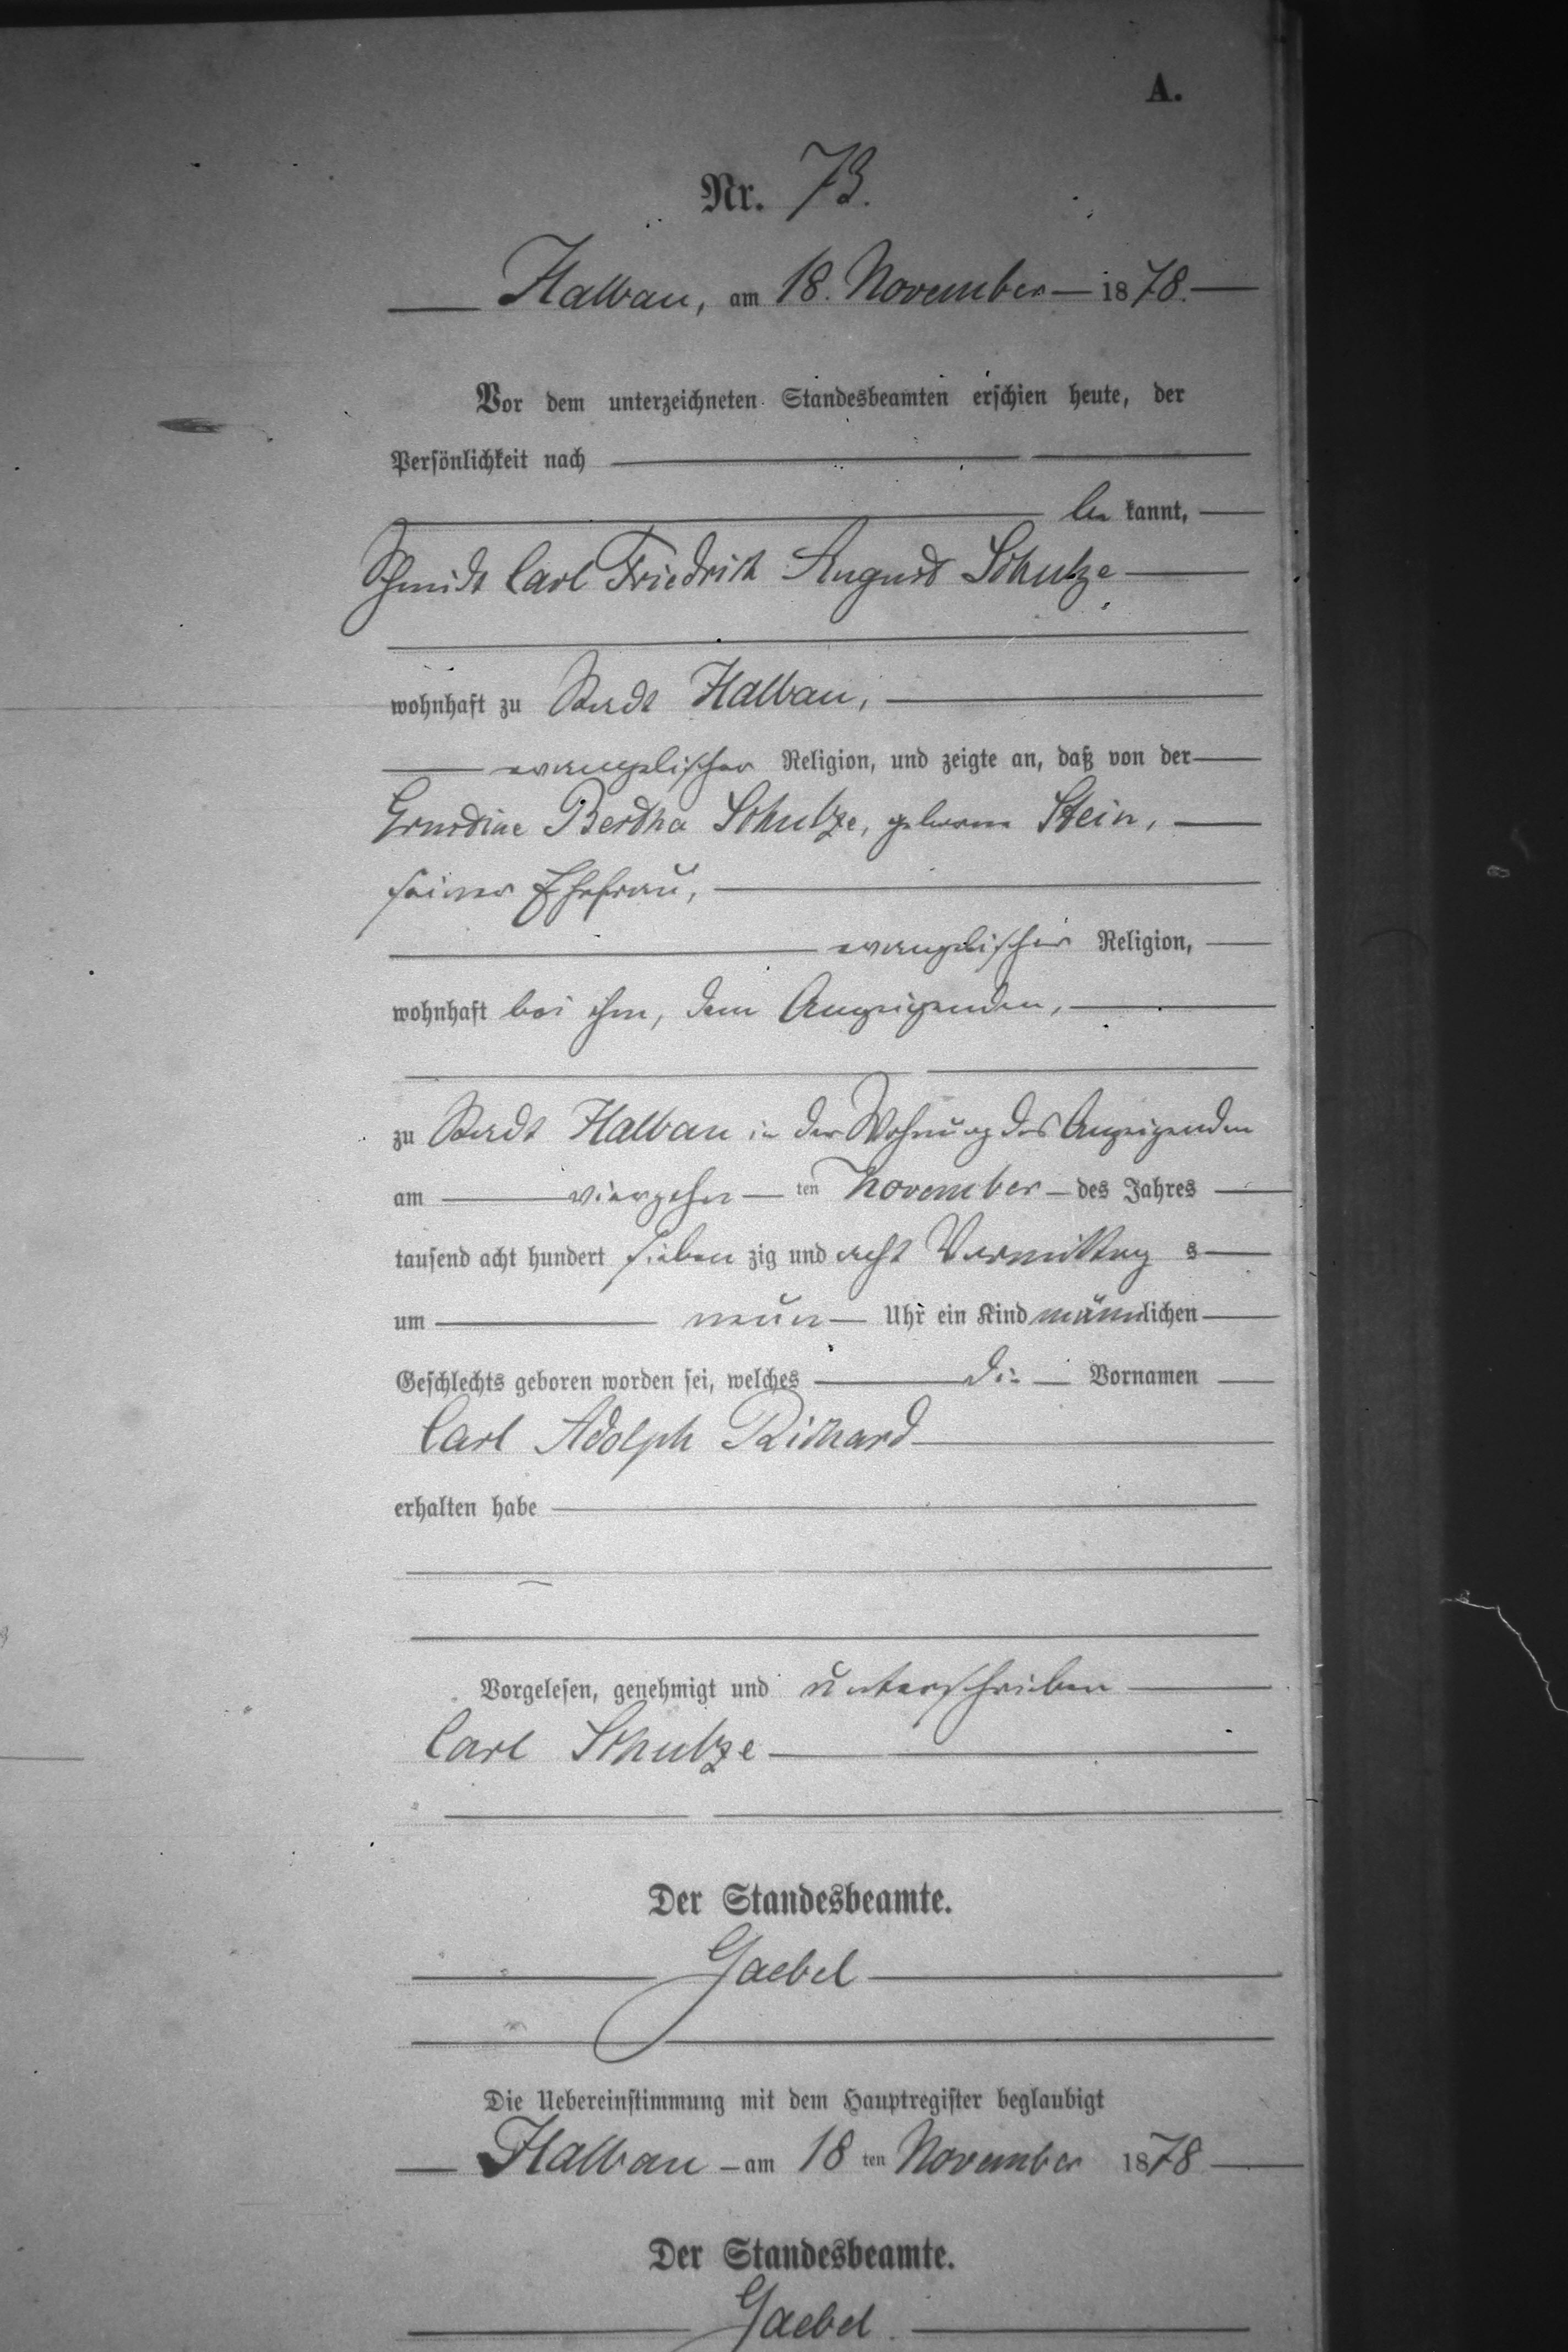 A.
Nr. 73.
Halbau, am 18. November 1878.
Vor dem unterzeichneten Standesbeamten erschien heute, der
Persönlichkeit nach
be kannt,
Schmidt Carl Friedrich August Schulze
wohnhaft zu Stadt Halbau,
evangelischer Religion, und zeigte an, daß von der
Ernestine Bertha Schulze, geborene Stein,
seiner Ehefrau,
evangelischer Religion,
wohnhaft bei ihm, dem Anzeigenden,
zu Stadt Halbau in der Wohnung des Anzeigenden
am vierzehn ten November des Jahres
tausend acht hundert sieben zig und acht Vormittag s
um neun Uhr ein Kind männlichen
Geschlechts geboren worden sei, welches die Vornamen
Carl Adolph Richard
erhalten habe
Vorgelesen, genehmigt und unterschrieben
Carl Schulze
Der Standesbeamte.
Gaebel
Die Uebereinstimmung mit dem Hauptregister beglaubigt
Halbau am 18 ten November 1878
Der Standesbeamte.
Gaebel.